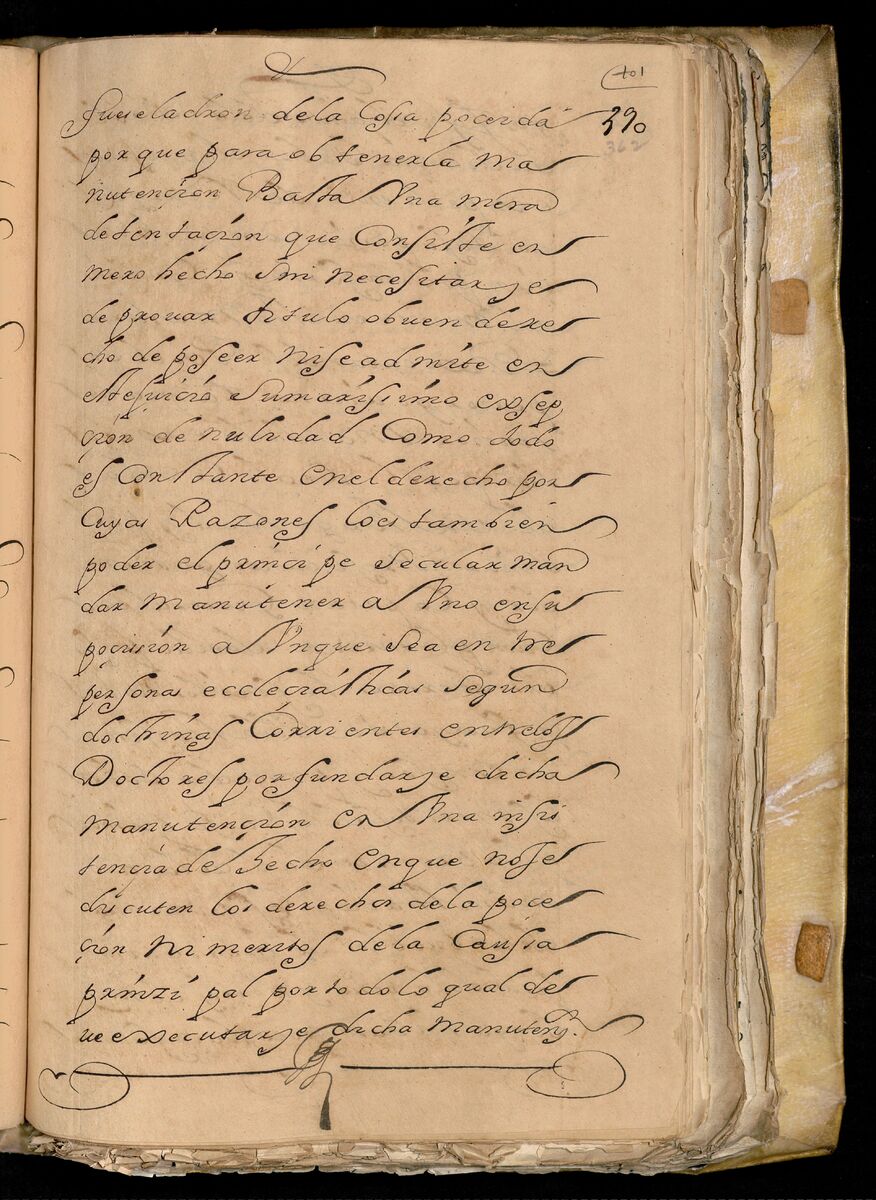 101
390
362
fuese ladron dela Cosa poceida
porque para obtenerla ma
nutencion Basta Vna mera
detentacion que Consiste en
mero hecho sin necesitarse
de provar titulo o buen dere
cho de poseer ni se admite en
este juicio sumarisimo exsep
cion de nulidad Como todo
es Constante en el derecho por
Cuyas Razones loes tambien
poder el principe secular man
dar manutener a Vno ensu
pocision a Vnque sea entre
personas ecclesiasticas segun
doctrinas Corrientes entrelos
Doctores por fundarse dicha
manutencion en Vna insis
tencia de hecho enque nose
discuten los derechos dela poce
cion ni meritos dela Caussa
prinzipal por todo lo qual de
ve executarse dicha manutenn.